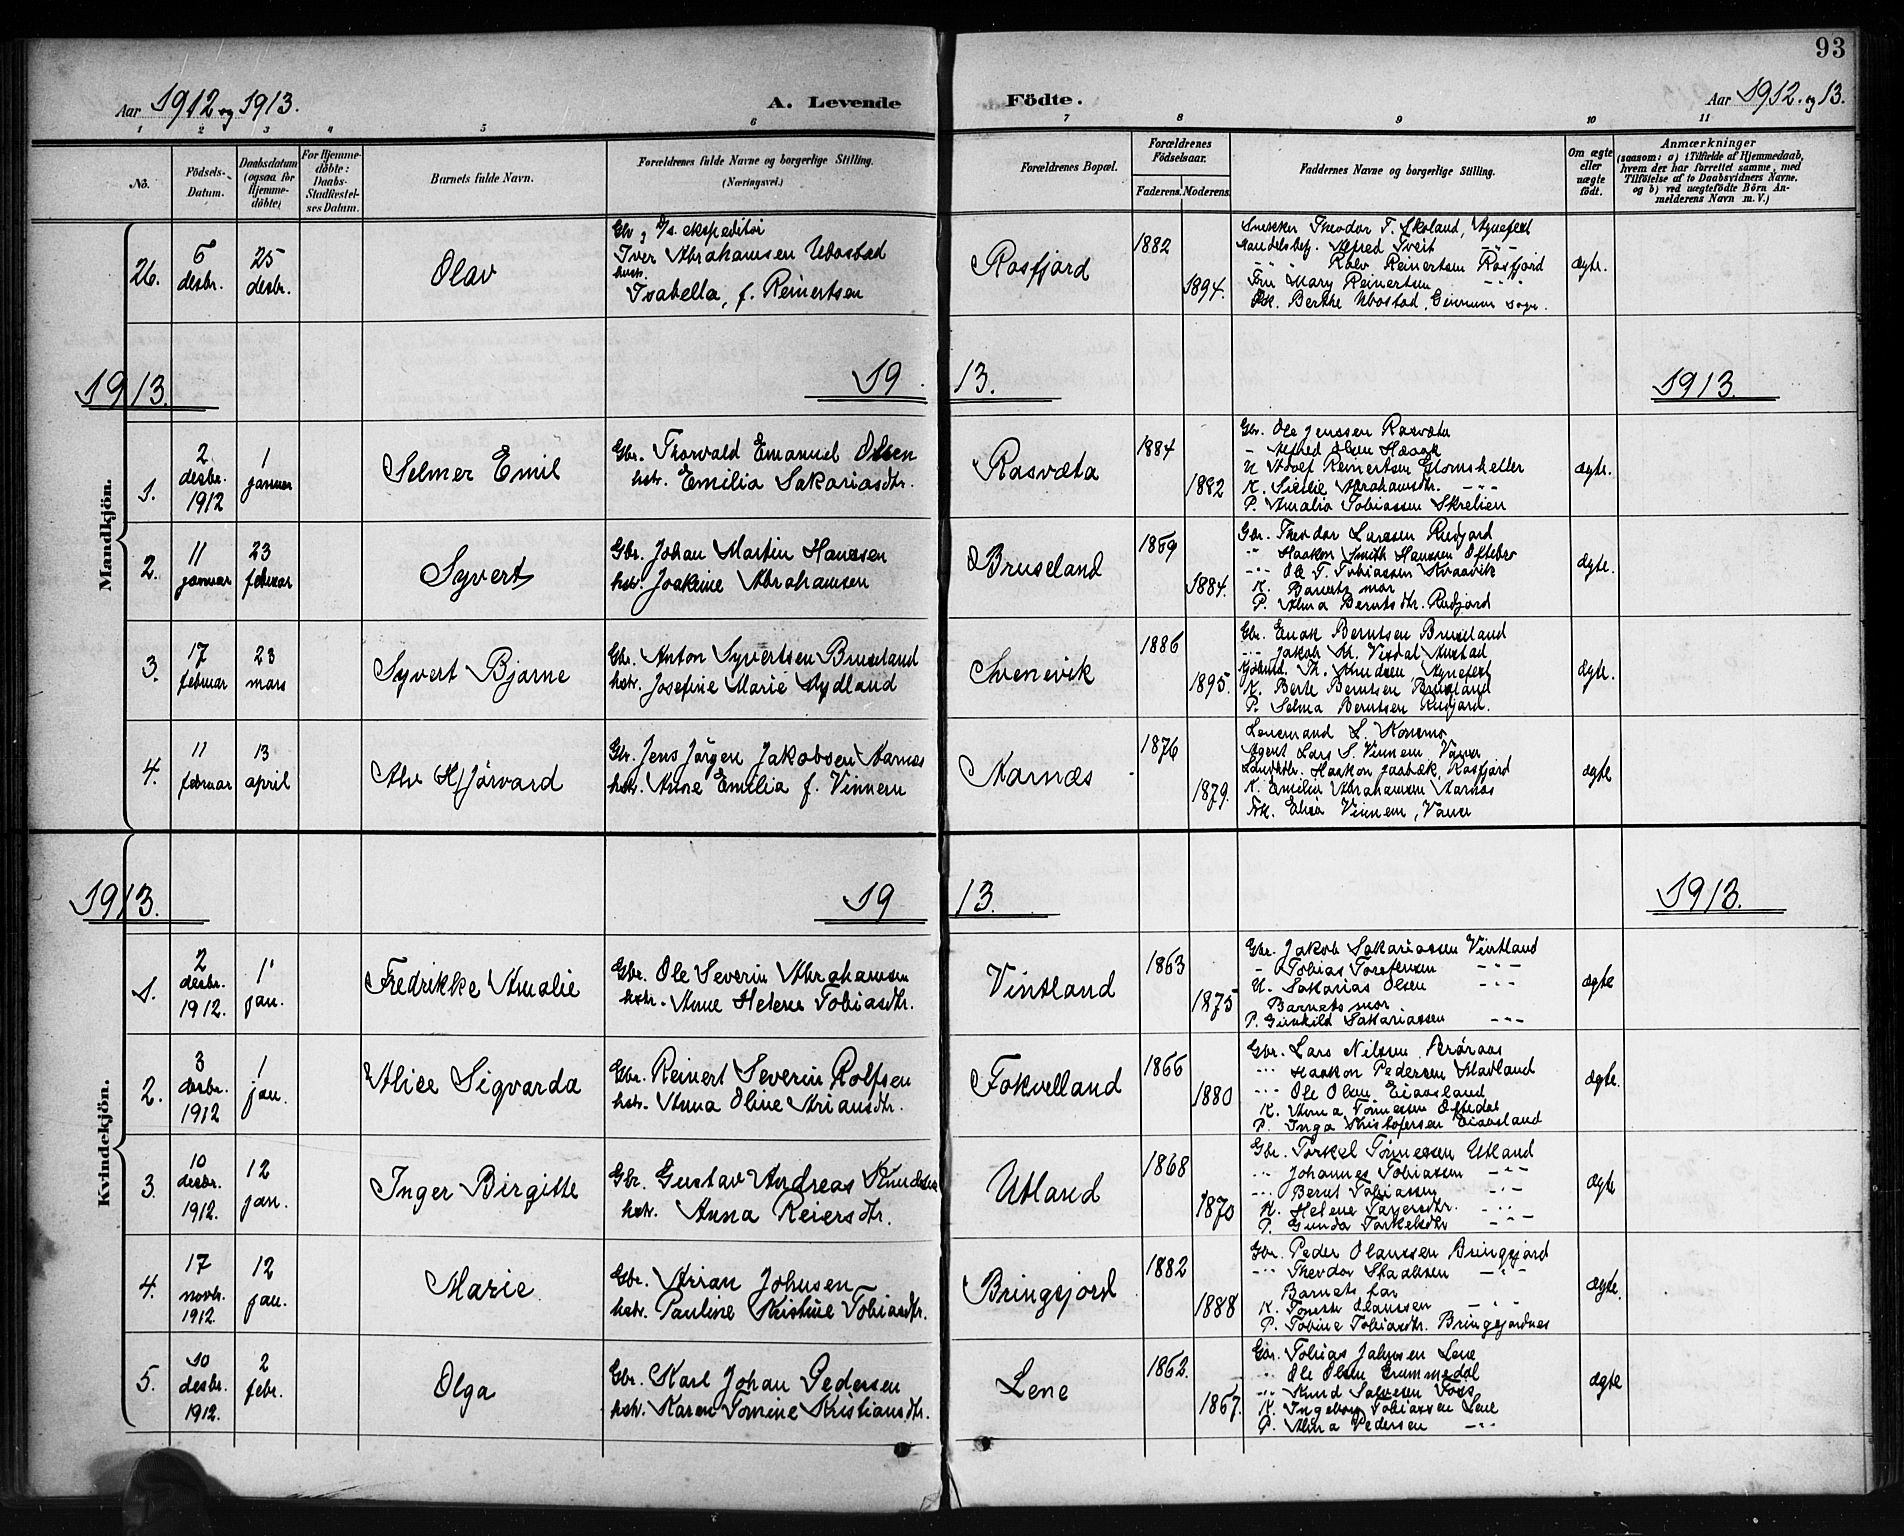 93
Aar 1912 og 1913.
A. Levende Födte.
Aar 1912. og 13.
1 2 3 4 5 6 7 8 9 10 11
No.
Födsels-Datum.
Daabsdatum (ogsaa for Hjemme-döbte)
For Hjemme-döbte: Daabs-Stadfæstel-ses Datum.
Barnets fulde Navn.
Forældrenes fulde Navne og borgerlige Stilling.
(Næringsvei.)
Forældrenes Bopæl.
Forældrenes Födselsaar.
Faderens. Moderens.
Faddernes Navne og borgerlige Stilling.
Om ægte eller uægte födt.
Anmærkninger
(saasom: a) i Tilfælde af Hjemmedaab,
hvem der har forrettet samme, med
Tilföielse af to Daabsvidners Navne,
og b) ved uægtefödte Börn An-
melderens Navn m. V.)
Mandkjön.
26. 6 desbr. 25 desbr. Olav
Gbr. og D/s. ekspeditör
Iver Abrahamsen Ubostad
hstr. Isabella, f. Reinertsen
Rosfjord 1882 1894.
Snekker Theodor F. Skoland, Agnefest
Handelsbef. Alfred Tveit - " -
- " - Rolv Reinertsen Rosfjord
Fru Mary Reinertsen - " -
Frk. Berthe Ubostad, sogn.
ægte.
1913. 1913. 1913.
1. 2 desbr. 1912 1 januar Selmer Emil
Gbr. Thorvald Emanuel Olsen
hstr. Emilia Sakariasdtr.
Rosvæta 1884 1882
Gbr. Ole Jenssen Rosvæta
- Alfred Olsen Haaak
U. Adolf Reinertsen Glomsheller
K. Sicilie Abrahamsdtr. - " -
P. Amalia Tobiassen Skreljen
ægte.
2. 11 januar 23 februar Syvert
Gbr. Johan Martin Hanssen
hstr. Joakine Abrahamsen
Bruseland 1869 1884.
Gbr. Theodor Larssen Rudjord
" Haakon Smith Hanssen Oftebro
- " - Ole T. Tobiassen Kvaavik
K. Barnets mor
P. Alma Berntsdtr. Rudjord
ægte.
3. 17 februar 23 mars Syvert Bjarne
Gbr. Anton Syvertsen Bruseland
hstr. Josefine Marie Nydland
Svenevik 1886 1895.
Gbr. Enok Berntsen Bruseland
- " - Jakob M. Visdal Austad
Kjöbmd. Th. Knudsen, Agnefest
K. Berte Berntsen Bruseland
P. Selma Berntsen Rudjord.
ægte.
4. 11 februar 13 april Alv Hjörvard
Gbr. Jens Jörgen Jakobsen Aarnes
hstr. Anne Emilia f. Vinnem
Aarnæs 1876 1879.
Lensmand L. Kommo
Agent Lars S. Vinnem, Vanse
Haakon Jaabæk, Rosfjord
K. Emilie Abrahamsen Aarnæs
Frk. Elisa Vinnem, Vanse
ægte
Kvindekjön.
1913. 1913. 1913.
1. 2 desbr. 1912. 1 jan. Fredrikke Amalie
Gbr. Ole Severin Abrahamsen
hstr. Anne Helene Tobiasdtr.
Vintland 1863 1875
Gbr. Jakob Sakariassen Vintland
- Tobias Torstensen - " -
U. Sakarias Olsen - " -
Barnets mor
P. Gunhild Sakariassen - " -
ægte
2. 3 desbr. 1912 1 jan. Alice Sigvarda
Gbr. Reinert Severin Rolfsen
hstr. Anna Oline Ariansdtr.
Fokvelland 1866 1880
Gbr. Lars Nilsen Aröraas
- " - Haakon Pedersen Mavland
- " - Ole Olsen Eiaasland
K. Anna Tönnessen Oftedal
P. Inga Kristofersen Eiaasland
ægte.
3. 10 desbr. 1912. 12 jan. Inger Birgitte
Gbr. Gustav Andreas Knudsen
hstr. Anna Reiersdtr.
Utland 1868 1870
Gbr. Torkel Tönnessen Utland
- " - Johannes Tobiassen - " -
- " - Bernt Tobiassen - " -
K. Helene - " -
P. Gunda Torkelsdtr - " -
ægte
4. 17 novbr. 1912. 12 jan. Marie
Gbr. Arian Johnsen
hstr. Pauline Kristine Tobiasdtr.
Bringsjord 1882 1888
Gbr. Peder Olaussen Bringsjord
- " - Theodor Staalesen - " -
Barnets far
K. Tomine Olaussen - " -
P. Tobine Tobiasdtr. Bringsjordnes
ægte.
5. 10 desbr. 1912. 2 febr. Olga
Gbr. Karl Johan Pedersen
hstr. Karen Tomine Kristiansdtr.
Lene 1862. 1867.
Gbr. Tobias Jakobsen Lene
" Ole Olsen Grummedal
- " - Knud Salvesen Foss
K. Ingeborg Tobiassen Lene
P. Alma Pedersen - " -
ægte